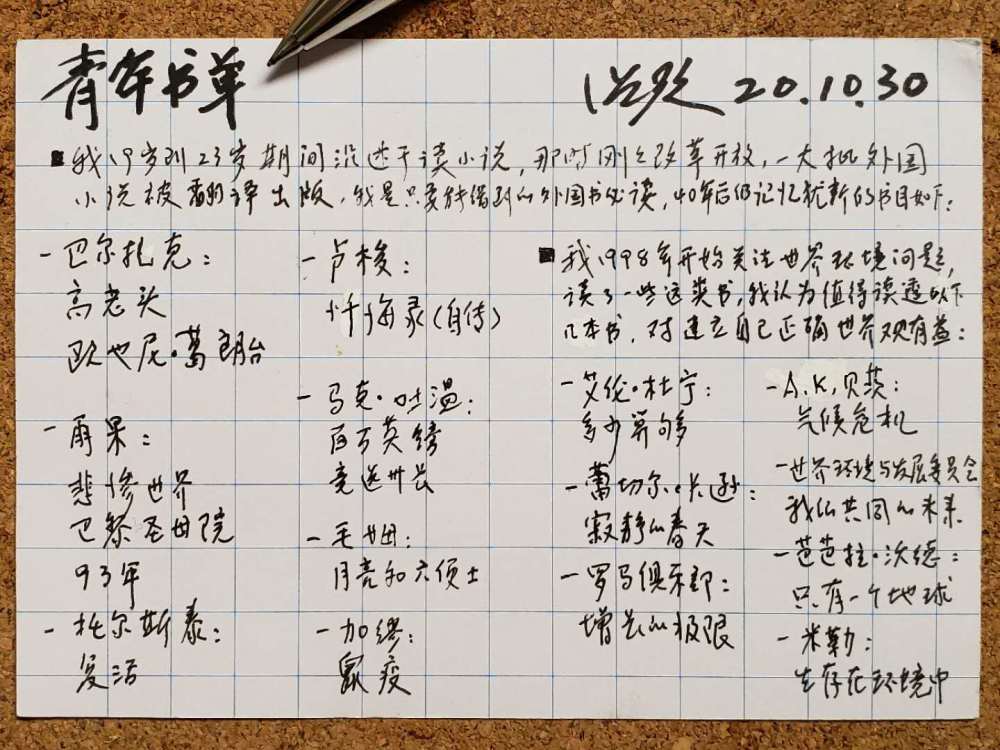 青年书单
20.10.30
■我19岁到23岁期间沉迷于读小说,那时刚刚改革开放,一大批外国
小说被翻译出版,我是只要能借到的外国书必读,40年后仍记忆犹新的书目如下:
-巴尔扎克:
高老头
欧也尼·葛朗台
-雨果:
悲惨世界
巴黎圣母院
93年
-托尔斯泰:
复活
-卢梭:
忏悔录(自传)
-马克·吐温:
百万英镑
竞选州长
-毛姆:
月亮和六便士
-加缪:
鼠疫
■我1998年开始关注世界环境问题,
读了一些这类书,我认为值得读透以下
几本书,对建立自己正确世界观有益:
-艾伦·杜宁:
多少算够
-蕾切尔·卡逊:
寂静的春天
-罗马俱乐部:
增长的极限
-A.K.贝茨:
气候危机
-世界环境与发展委员会
我们共同的未来
-芭芭拉·沃德:
只有一个地球
-米勒:
生存在环境中